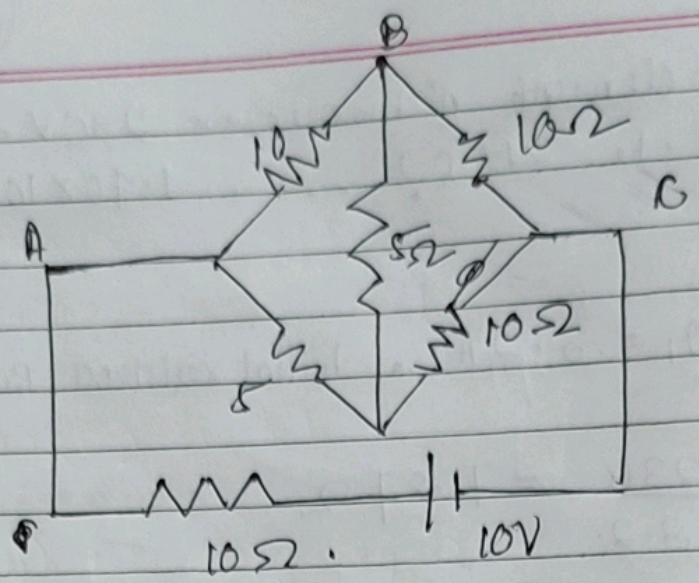 B
10
10Ω
A
C
5Ω
10Ω
5
10Ω.
10V